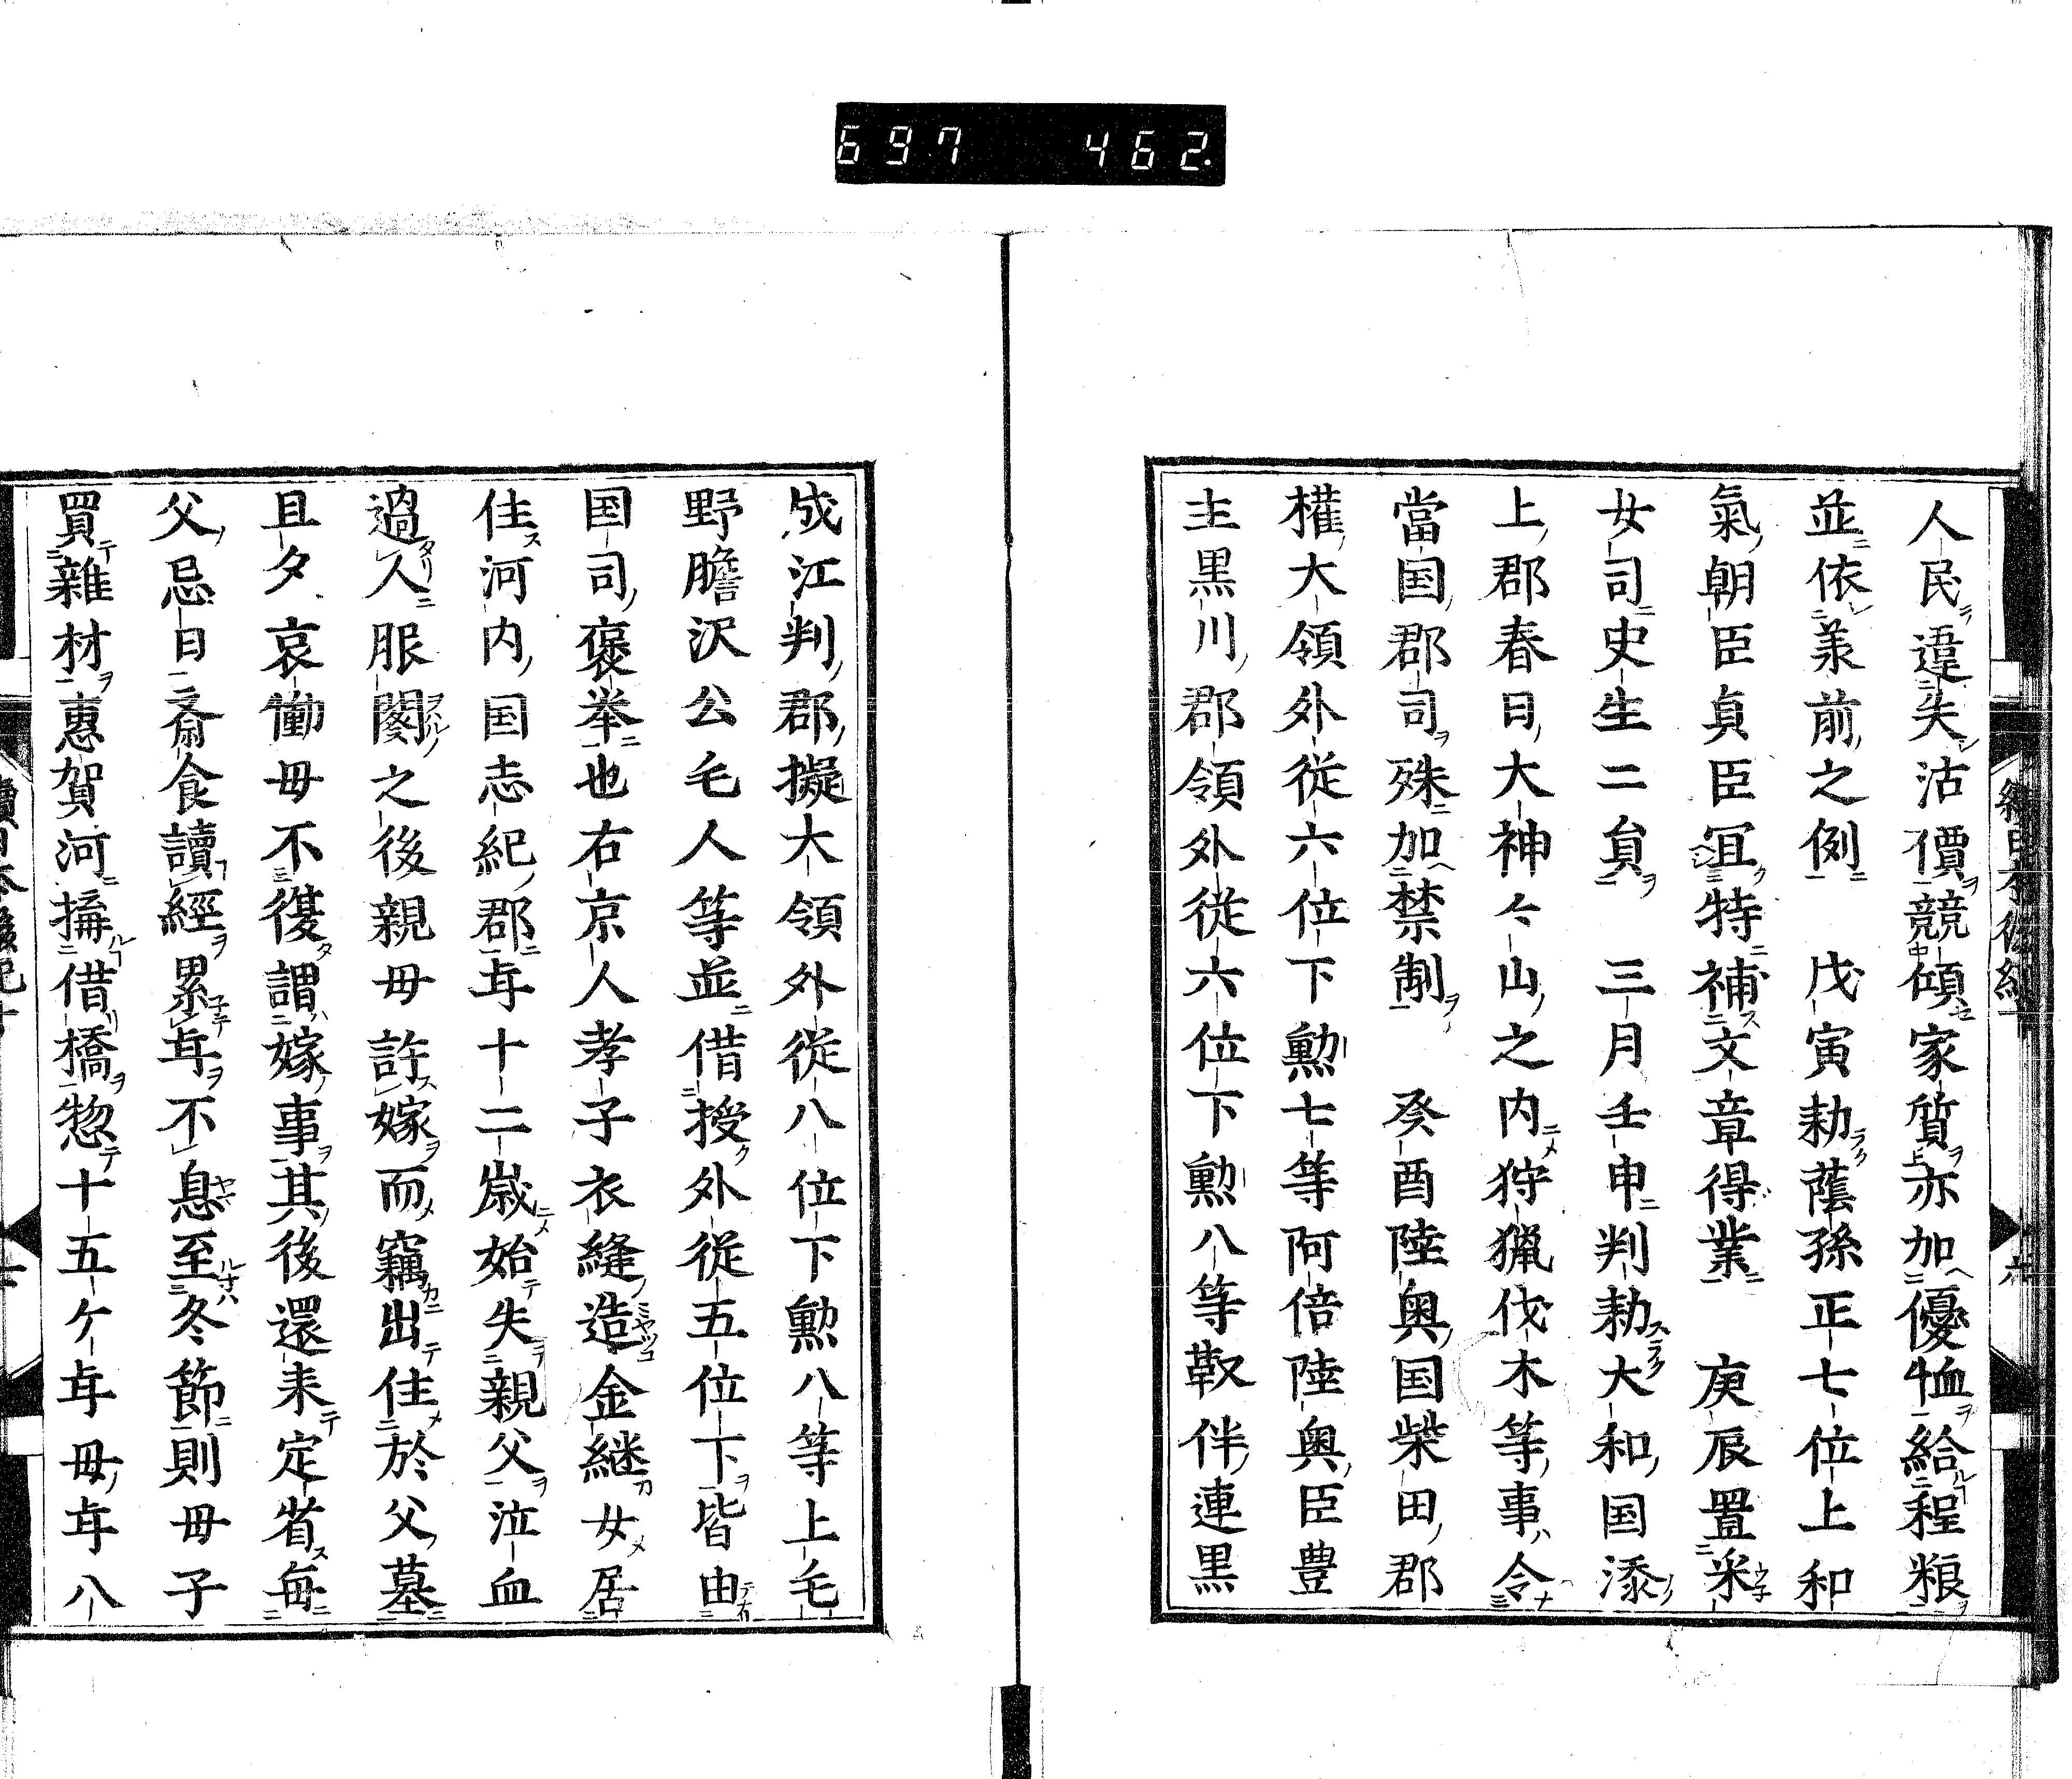 697 462.
人民違失沽價競傾家質亦加優恤給程粮
並依羕前之例 戊寅勅蔭孫正七位上和
氣朝臣貞臣冝特補文章得業 庚辰置采
女司史生二貟 三月壬申判勅大和国添
上郡春日大神々山之内狩猟伐木等事令
當国郡司殊加禁制 癸酉陸奥国柴田郡
權大領外従六位下勲七等阿倍陸奥臣豊
主黒川郡領外従六位下勲八等靫伴連黒
成江判郡擬大領外従八位下勲八等上毛
野膽沢公毛人等並借授外従五位下皆由
国司褒举也右京人孝子衣縫造金継女居
住河内国志紀郡年十二歳始失親父泣血
過人服闋之後親毋許嫁而竊出住於父墓
且夕哀慟毋不復謂嫁事其後還来定省每
父忌日斎食讀經累年不息至冬節則毋子
買雜材惠賀河搆借橋惣十五ケ年毋年八